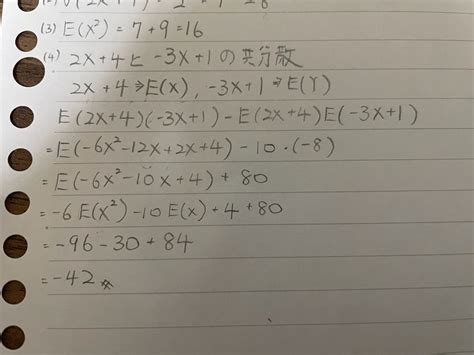 (3) E(X²) = 7+9 = 16
(4) 2X+4と -3X+1の共分散
2X+4⇒E(X), -3X+1⇒E(Y)
E(2X+4)(-3X+1)-E(2X+4)E(-3X+1)
=E(-6X²-12X+2X+4) - 10・(-8)
=E(-6X²-10X+4) + 80
=-6E(X²)-10E(X)+4+80
=-96-30+84
=-42